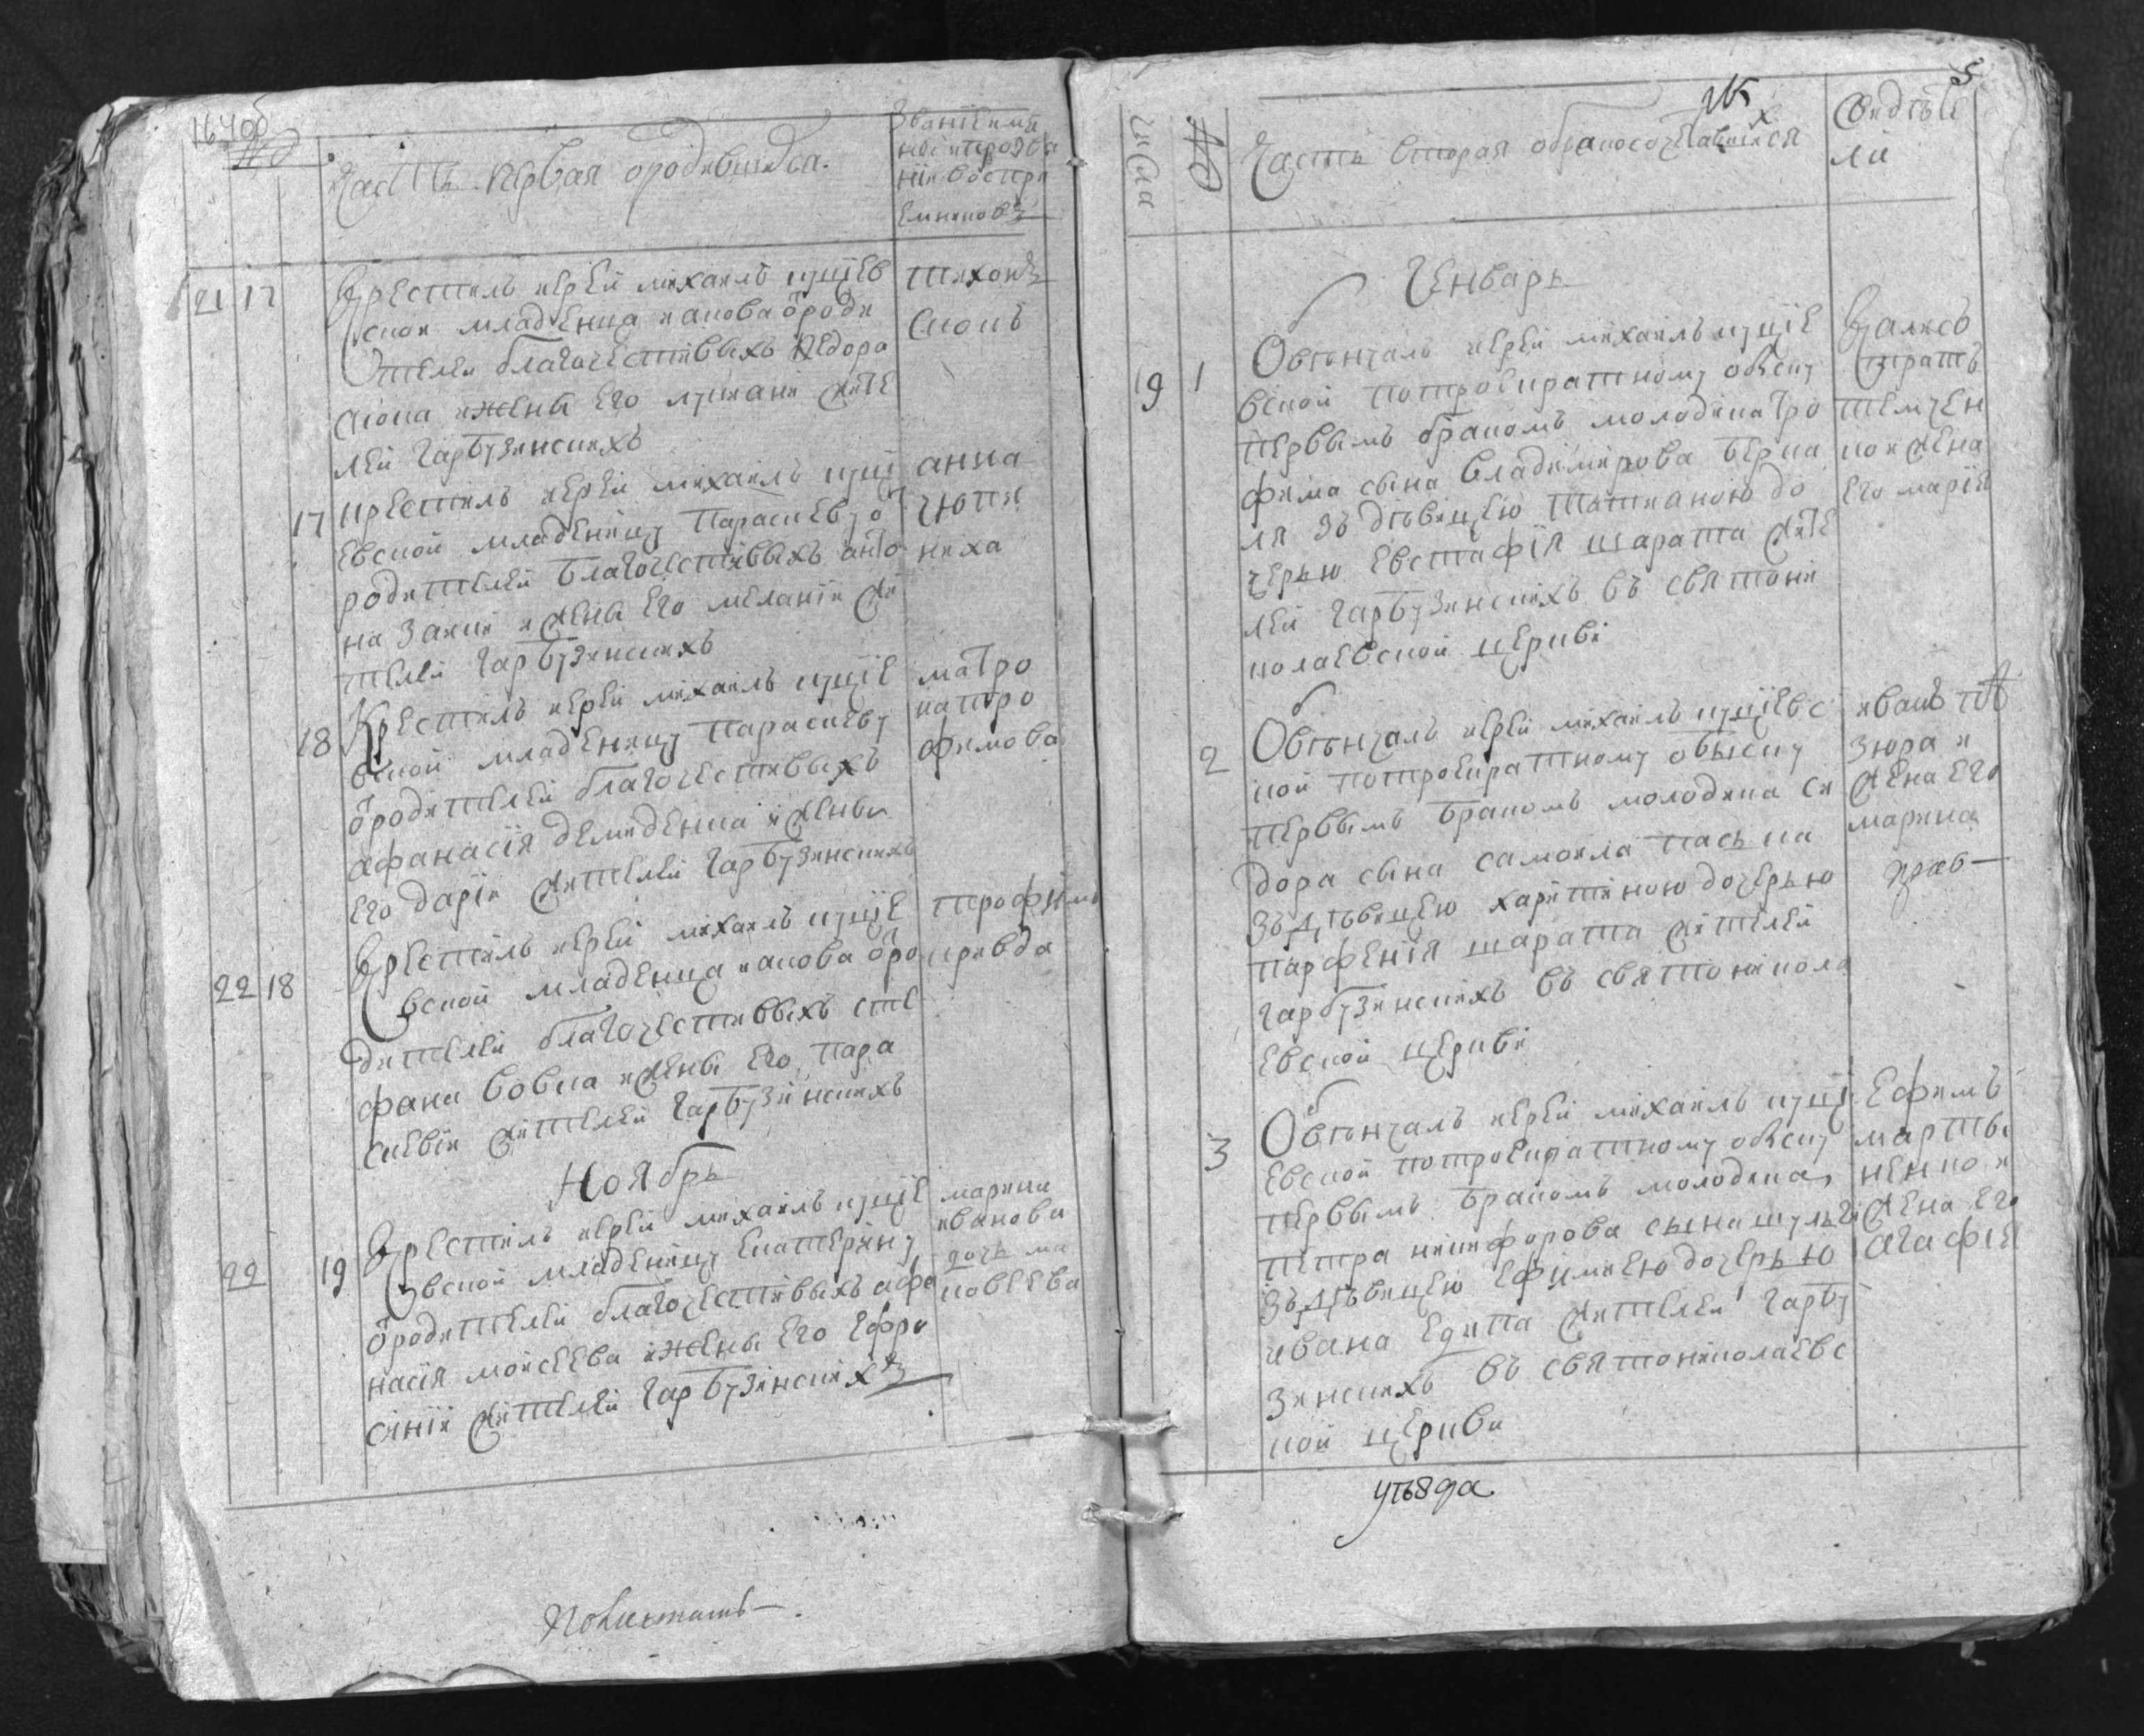 164об
Часть первая ородившихся.
Звание имя
ние и прозва
ние воспри
емников
21 17 Крестилъ иерей михаилъ куцїев
ской младенца иакова ѿ роди
телей благочестивыхъ
и жены его лукиани жите
лей гарбузинскихъ
тихонъ
17 крестилъ иерей михаилъ куцї
евской младеницу параскеву ѿ
родителей благочестивыхъ анто
на заики и жены его меланїи жи
телей гарбузинскихъ
анна
чюпи
ниха
18 Крестилъ иерей михаилъ куцїе
вской младеницу параскеву
ѿ родителей благочестивыхъ
афанасїя демиденка и жены
его дарїи жителей гарбузинскихъ
матро
на тро
фимова
22 18 Крестилъ иерей михаилъ куцїе
вской младенца иакова ѿ ро
дителей благочестивыхъ сте
фана вовка и жены его пара
скевїи жителей гарбузинскихъ
трофимъ
кривда
Ноябрь
22 19 Крестилъ иерей михаилъ куцїе
вской младеницу екатерину
ѿ родителей благочестивыхъ афа
насїя моисеева и жены его ефро
синїи жителей гарбузинскихъ
марина
иванова
дочь ма
ковеева
5
числа
Часть вторая о бракосочетавшихся
Свидѣте
ли
Генварь
9 1 Обвѣнчалъ иерей михаилъ куцїе
вской по троекратному обиску
первымъ бракомъ молодика тро
фима сына владимирова
ля зъ дѣвицею татианою до
черью евстафїя шарапа жите
лей гарбузинскихъ въ святони
колаевской церкви
кондратъ
и жена
его марїя
2 Обвѣнчалъ иерей михаилъ куцїевс
кой по троекратному обыску
первымъ бракомъ молодика си
дора сына самоила паська
зъ дѣвицею харитиною дочерью
парфенїя шарапа жителей
гарбузинскихъ въ святонікола
евской церкви
иванъ
зюра и
жена его
марина
3 Обвѣнчалъ иерей михаилъ куцї
евской по троекратному обиску
первымъ бракомъ молодика
петра никифорова сына шульги
зъ дѣвицею ефимиею дочерью
ивана жителей гарбу
зинскихъ въ святониколаевс
кой церкви
ефимъ
марты
ненко и
жена его
агафїя
уѣзда